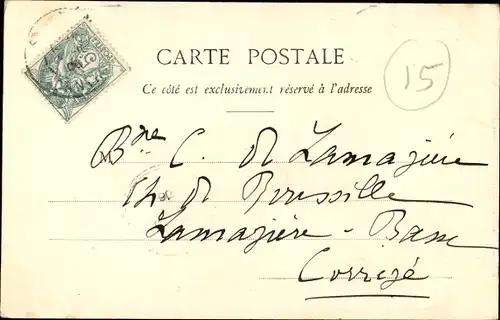 CARTE POSTALE
15
Ce côté est exclusivement réservé à l'adresse
Bne C. de Lamazière
Ch de
Lamazière - Basse
Corrèze